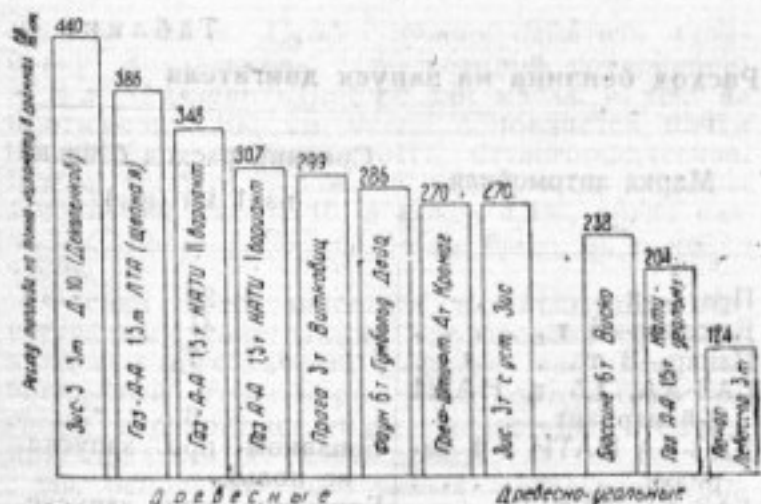 Расход топлива на тонно-километр в граммах
440
386
348
307
299
286
270
270
238
204
124
Зис-3 3т Д-10 (Декаленков)
Газ-А-А 1,5т ЛТА (Щепная)
Газ-А-А 1,5т НАТИ II вариант
Газ А-А 1,5т НАТИ I вариант
Прага 3т Витковиц
Фаун 6т Гумбольд Дейц
Греф-Штифт 4т Кромаг
Зис 3т с уст. Зис
Бюссинг 6т Виско
Газ А-А 1,5т НАТИ-угольная
Панар Левассор 3т
Древесные
Древесно-угольные
Расход бензина на запуск двигателя
Марка автомобиля